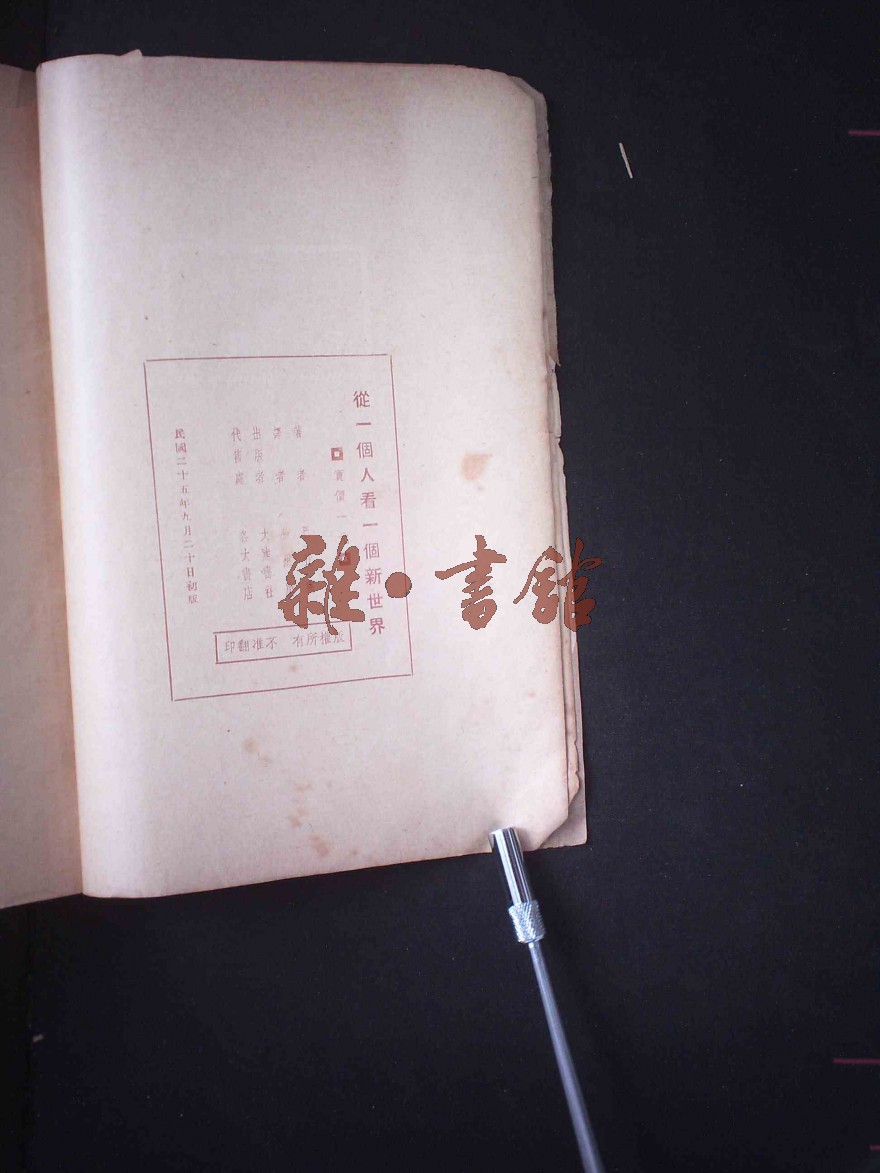 從一個人看一個新世界
實價一
著者
譯者
出版者 大陸書社
代售處 各大書店
民國二十五年九月二十日初版
版權所有 不准翻印
雜·書館